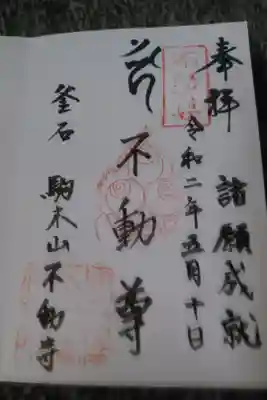 奉拝 諸願成就
令和二年五月十日
不動尊
釜石 駒木山不動寺